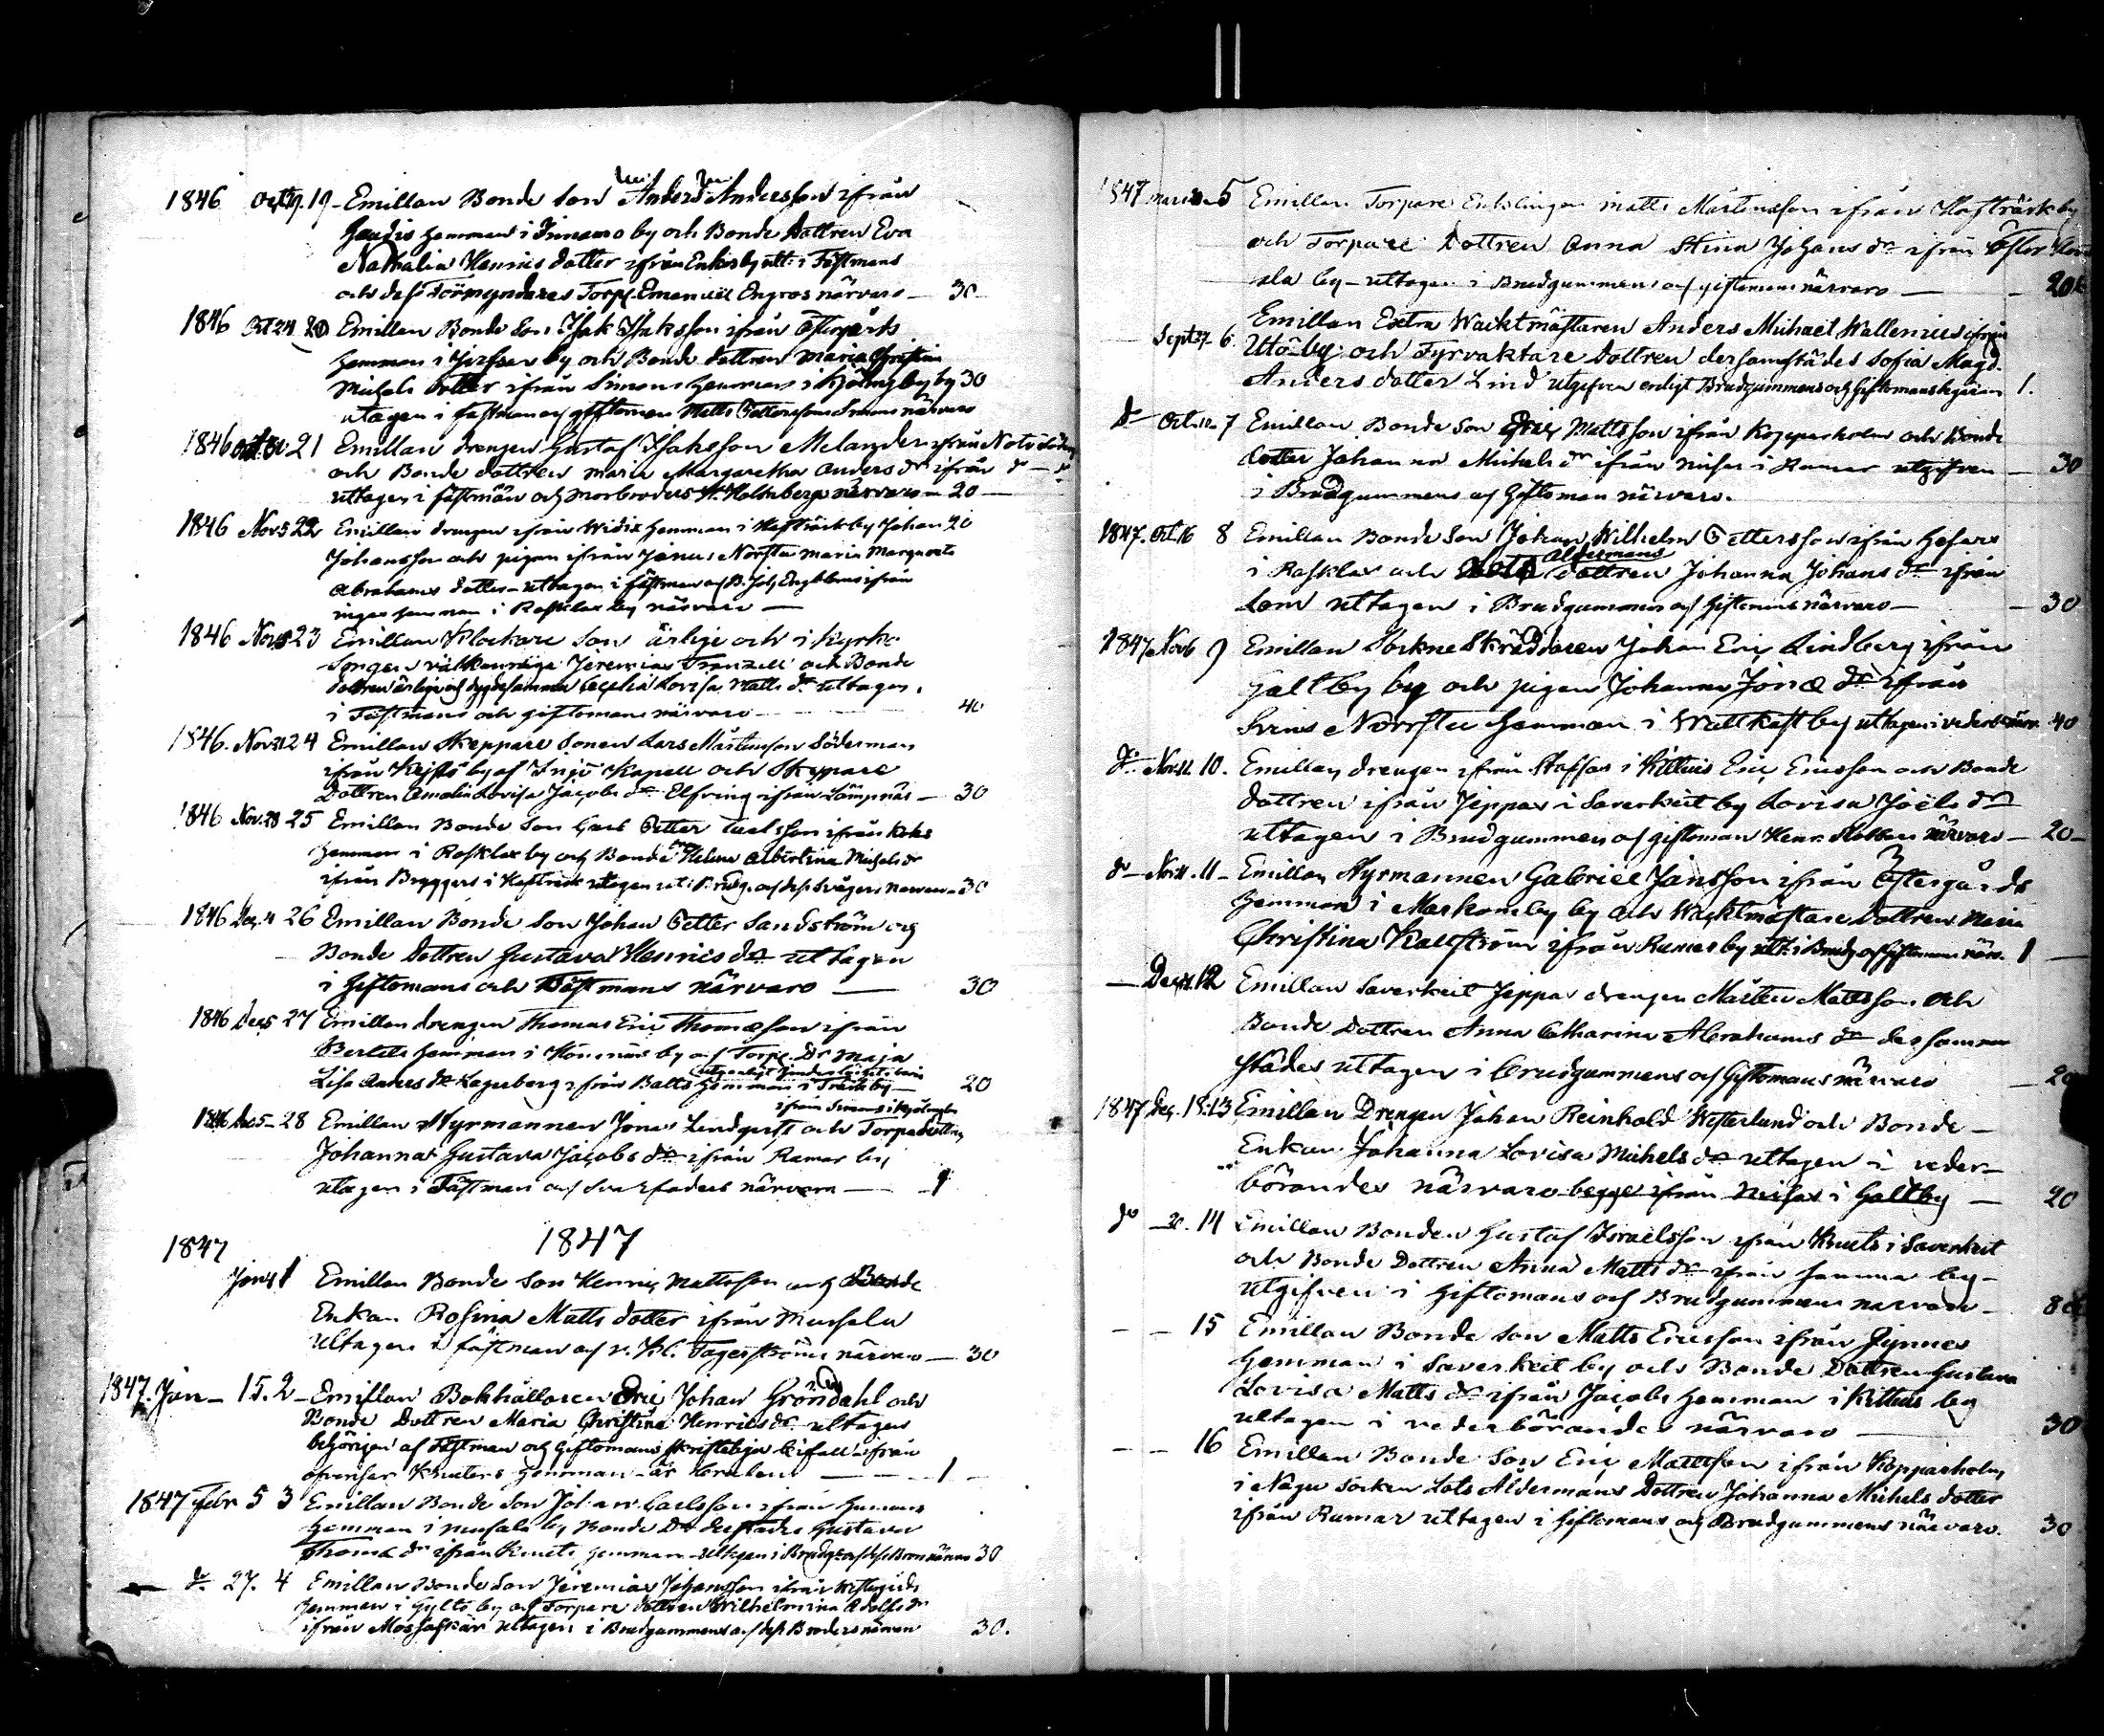 1846 Oct. 19. 19 Emillan Bonde Son Anders Andersson ifrån
hemman i by och Bonde Dottren Eva
Nathalia Henriks dotter ifrån Enkisby utt. i Fästmans
och dess Förmyndares Torp. Emanuel Engros närvaro — 30
1846 Oct 24 20 Emillan Bonde Son Isak Isaksson ifrån Östergårds
hemman i by och Bonde dottren Maria Christina
Michels Dotter ifrån Simons hemman i by 30
utagen i fästman och giftoman Matts Pettersson Simons närvaro
1846 Oct. 21 Emillan drengen Gustaf Isaksson Melander ifrån
och Bonde dottren Maria Margaretha Anders dr ifrån do — do
uttagen i fästman och morbroders Holmbergs närvaro — 20 —
1846 Nov 5 22 Emillan drengen ifrån Widix hemman i Hafträsk by Johan 20
Johansson och pigan ifrån Jönus Norrstu Maria Margareta
Abrahams dotter uttagen i fästman och B. Joh. Engblom ifrån
hemman i Rosklax by närvaro —
1846 Nov. 23 Emillan Klockare Son ärlige och i Kyrko
Songen välkunnige Jeremias Franzell och Bonde
dottren ärlige och dygdesamma Cecelia Lovisa Matts dr uttagen
i Fästmans och giftomans närvaro — 40
1846. Nov 21 24 Emillan Skeppare Sonen Lars Mårtensson Söderman
ifrån by af Iniö Kapell och Skeppare
Dottren Amalia Lovisa Jacobs dr Elfving ifrån Lömpnäs — 30
1846 Nov. 28 25 Emillan Bonde Son Carl Petter Carlsson ifrån
hemman i Rosklax by och Bonde Helena Albertina Michels dr
ifrån Bryggers i Hafträsk utagen ut i Brudg. och dess Svågers närvaro — 30
1846 Dec. 4 26 Emillan Bonde Son Johan Petter Sandström och
Bonde Dottren Gustava Henrics dr uttagen
i Giftomans och Fästmans närvaro — 30
1846 Dec 5 27 Emillan drengen Thomas Eric Thomæson ifrån
Bertels hemman i Könnäs by och Torp. Dr Maja
Lisa Anders dr Lagerberg ifrån Balts hemman i Träsk by — 20
ifrån Simons i
1846 Dec 5 28 Emillan Styrmannen Jonas Lindqvist och Torpare dottren
Johanna Gustava Jacobs dr ifrån Ramar by
utagen i Fästman och Svärfaders närvaro — 1
1847 1847
Jan 4 1 Emillan Bonde Son Henric Mattsson och Bonde
Enkan Rosina Matts dotter ifrån Mussala
Uttagen i fästman och v. Kl. Fagerströms närvaro — 30
1847. Jan — 15. 2 — Emillan Bokhållaren Eric Johan Gröndahl och
Bonde Dottren Maria Christina Henrics dr uttagen
behörigen af Fästman och Giftomans skriftelige bifall ifrån
hemman — 1 —
1847 Febr 5 3 Emillan Bonde Son Johan Carlsson ifrån
hemman i Mussala by Bonde Dr Gustava
Thomæ dr ifrån Knuts hemman — uttagen i Brudg. och dess närvaro 30
do. 27. 4 Emillan Bonde Son Jeremias Johansson ifrån Westergårds
hemman i Gyltö by och Torpare dottren Wilhelmina Adolfs dr
ifrån Mossaskär uttagen i Brudgummens och dess Broders närvaro 30.
1847 Mars 5 Emillan Torpare Enklingen Matts Mårtensson ifrån Hafträsk by
och Torpare Dottren Anna Stina Johans dr ifrån Öster
by — uttagen i Brudgummens och giftomans närvaro — 20
— Sept 27 6. Emillan Extra Wacktmästaren Anders Michael Wallenius ifrån
Utö by och Fyrvaktare dottren dersamstädes Sofia Magd.
Anders dotter Lind utgifven enligt Brudgummens och Giftomans begäran 1.
do — Oct. 7 Emillan Bonde Son Eric Mattsson ifrån Kopparholm och Bonde
dotter Johanna Michels dr ifrån Nisas i Ramar utgifven — 30
i Brudgummens och Giftoman närvaro.
1847. Oct. 16 8 Emillan Bonde Son Johan Wilhelm Pettersson ifrån
Åldermans
i Rosklax och Lots dottren Johanna Johans dr ifrån
Lom uttagen i Brudgummens och Giftomans närvaro — 30
1847 Nov 6 9 Emillan Sockne Skräddaren Johan Eric Lindberg ifrån
Galtby by och pigan Johanna Jonæ dr ifrån
Svens Norrstu hemman i Wattkast by uttagen i vederb. närv. 40
do. Nov. 10. Emillan drengen ifrån Staffas i Kittuis Eric Ericsson och Bonde
dottren ifrån Jeppas i Saverkeit by Lovisa Joëls dr
uttagen i Brudgummen och giftoman Henr. närvaro — 20 —
do — Nov. 11 — Emillan Styrmannen Gabriel Jansson ifrån Östergårds
hemman i Markomby by och Wacktmästare Dottren Maria
Christina Källström ifrån Ramar by utt. i Brudg. och Giftomans närv. 1 —
— Dec. 12 Emillan Saverkeit Jeppas drengen Mårten Mattsson och
Bonde Dottren Anna Catharina Abrahams dr dersamma
städes uttagen i Brudgummens och Giftomans närvaro — 20
1847 Dec. 18. 13 Emillan Drengen Johan Reinhold Westerlund och Bonde —
Enkan Johanna Lovisa Michels dr uttagen i veder-
börandes närvaro begge ifrån Nisas i Galtby — 20
do — 20. 14 Emillan Bonden Gustaf Israelsson ifrån Knuts i Saverkeit
och Bonde Dottren Anna Matts dr ifrån samma by —
utgifven i Giftomans och Brudgummens närvaro —
— — 15 Emillan Bonde Son Matts Ericsson ifrån Gynnes
hemman i Saverkeit by och Bonde Dottren Gustava
Lovisa Matts dr ifrån Jacobs hemman i Kittuis by
uttagen i vederbörandes närvaro — 30
— — 16 Emillan Bonde Son Eric Mattsson ifrån Kopparholm
i Nagu Socken Lots Åldermans Dottren Johanna Michels dotter
ifrån Ramar uttagen i Giftomans och Brudgummens närvaro. 30